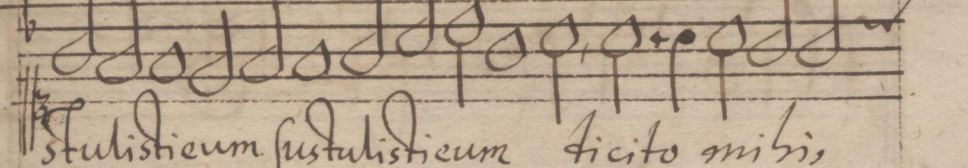 stulistieum sustulistieum dicito mihi,